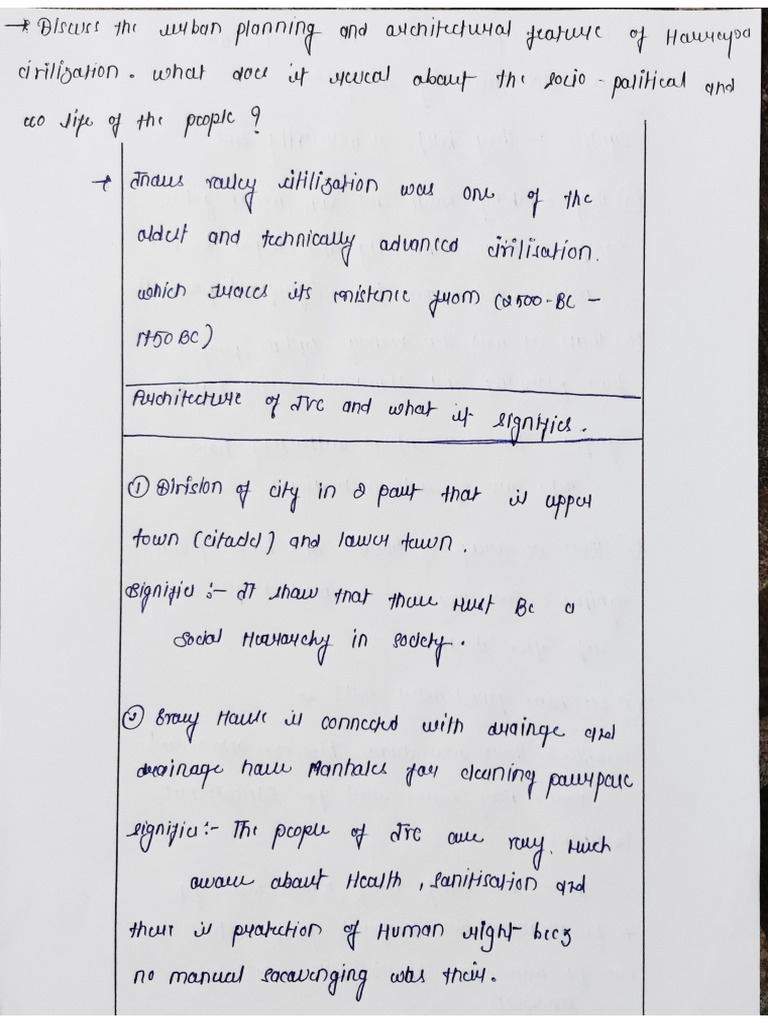 → Discuss the urban planning and architectural feature of Harreyoa
civilization. what does it reveal about the socio-political and
eco life of the people?
→ Indus valley sitilization was one of the
oldest and technically advanced civilisation.
which traces its existence from (2500-BC -
1750 BC)
Architecture of IVC and what it signifies.
① Division of city in 2 part that is upper
town (citadel) and lower town.
Signifies :- It show that there must Be a
Social Hierarchy in society.
② Every House is connected with drainge and
drainage have Manholes for cleaning pourpose
signifies :- The people of IVC are very. Much
aware about Health, sanitisation and
there is protection of Human right becz
no manual sacavenging was their.